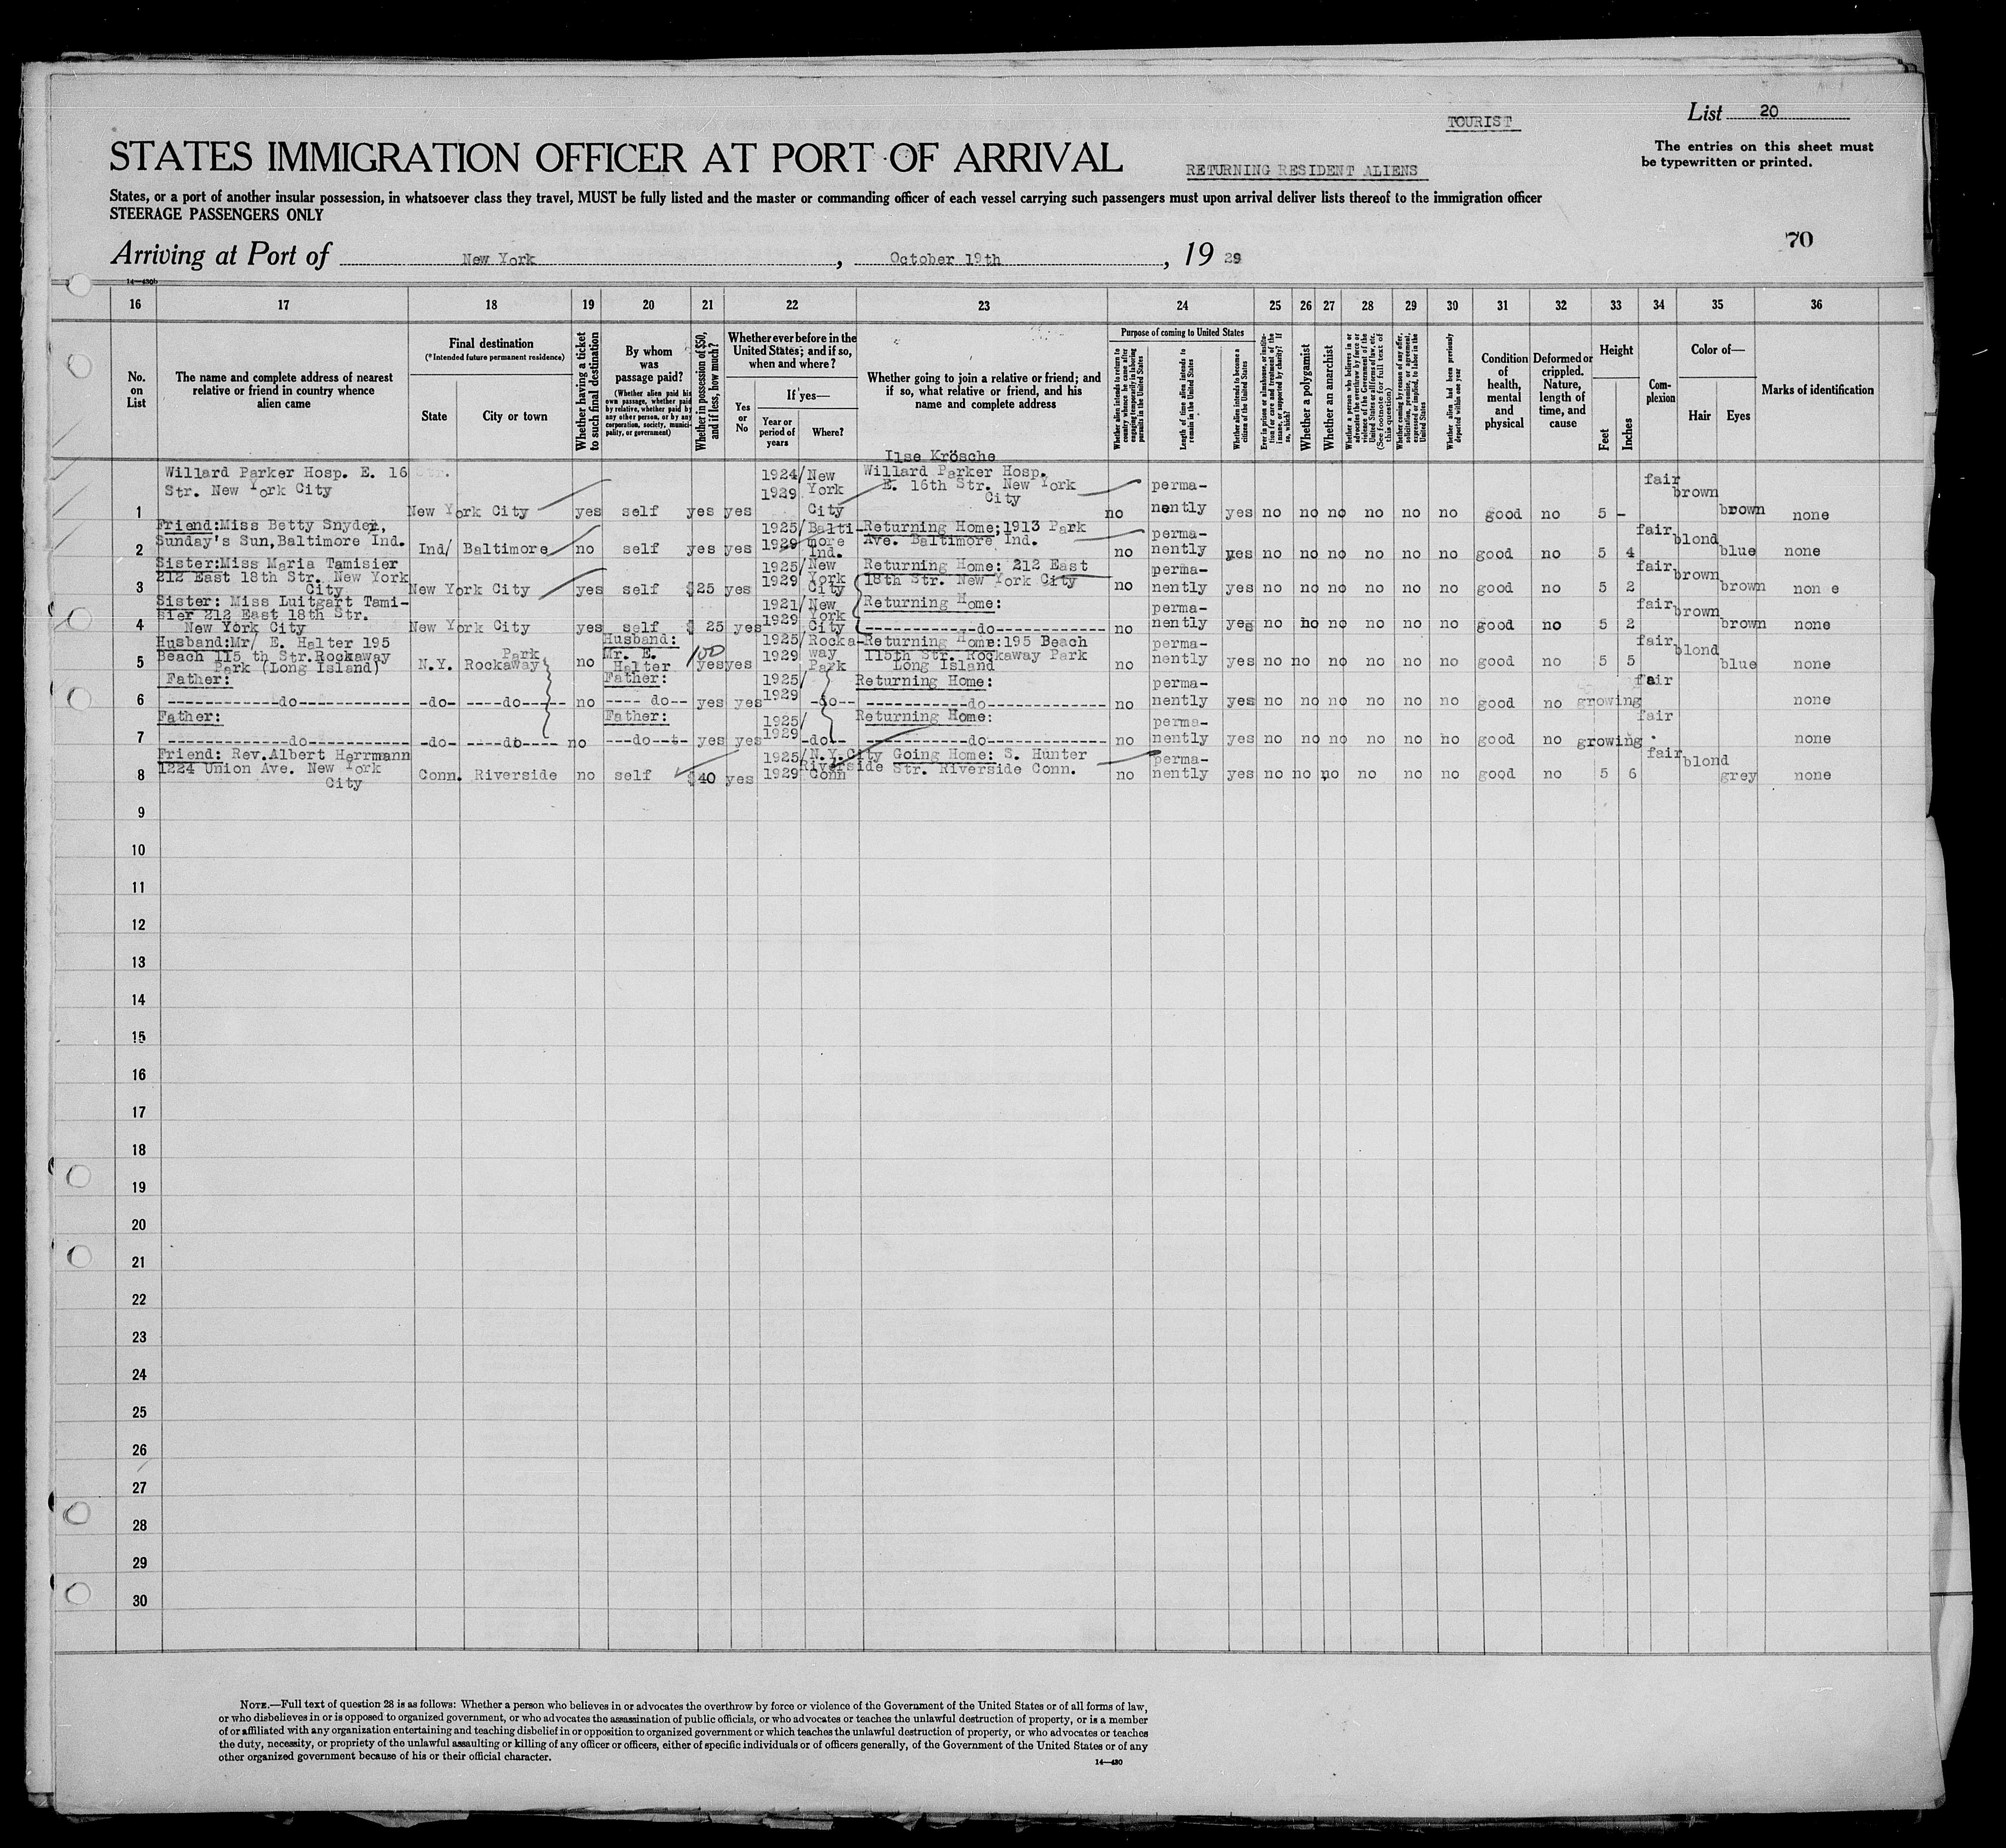 TOURIST
List 20
The entries on this sheet must
be typewritten or printed.
STATES IMMIGRATION OFFICER AT PORT OF ARRIVAL
RETURNING RESIDENT ALIENS
States, or a port of another insular possession, in whatsoever class they travel, MUST be fully listed and the master or commanding officer of each vessel carrying such passengers must upon arrival deliver lists thereof to the immigration officer
STEERAGE PASSENGERS ONLY
70
Arriving at Port of New York, October 19th, 19 29
14—430b
16 17 18 19 20 21 22 23 24 25 26 27 28 29 30 31 32 33 34 35 36
No.
on
List
The name and complete address of nearest
relative or friend in country whence
alien came
Final destination
(*Intended future permanent residence)
State
City or town
Whether having a ticket
to such final destination
By whom
was
passage paid?
(Whether alien paid his
own passage, whether paid
by relative, whether paid by
any other person, or by any
corporation, society, munici-
pality, or government)
Whether in possession of $50,
and if less, how much?
Whether ever before in the
United States; and if so,
when and where?
Yes
or
No
If yes—
Year or
period of
years
Where?
Whether going to join a relative or friend; and
if so, what relative or friend, and his
name and complete address
Purpose of coming to United States
Whether alien intends to return to
country whence he came after
engaging temporarily in laboring
pursuits in the United States
Length of time alien intends to
remain in the United States
Whether alien intends to become a
citizen of the United States
Ever in prison or almshouse, or institu-
tion for care and treatment of the
insane, or supported by charity? If
so, which?
Whether a polygamist
Whether an anarchist
Whether a person who believes in or
advocates the overthrow by force or
violence of the Government of the
United States or all forms of law, etc.
(See footnote for full text of
this question)
Whether coming by reason of any offer,
solicitation, promise, or agreement,
expressed or implied, to labor in the
United States
Whether alien had been previously
deported within one year
Condition
of
health,
mental
and
physical
Deformed or
crippled.
Nature,
length of
time, and
cause
Height
Feet
Inches
Com-
plexion
Color of—
Hair
Eyes
Marks of identification
Ilse Krösche
Willard Parker Hosp. E. 16 Str.
Str. New York City
1 New York City yes self yes yes 1924/1929 New York City
Willard Parker Hosp.
E. 16th Str. New York
City
no perma-nently yes no no no no no no good no 5 - fair brown brown none
Friend:Miss Betty Snyder,
Sunday's Sun,Baltimore Ind.
2 Ind/ Baltimore no self yes yes 1925/1929 Balti-more Ind.
Returning Home;1913 Park
Ave. Baltimore Ind.
no perma-nently yes no no no no no no good no 5 4 fair blond blue none
Sister:Miss Maria Tamisier
212 East 18th Str. New York
City
3 New York City yes self $25 yes 1925/1929 New York City
Returning Home: 212 East
18th Str. New York City
no perma-nently yes no no no no no no good no 5 2 fair brown brown non e
Sister: Miss Luitgart Tami-
sier 212 East 18th Str.
New York City
4 New York City yes self $ 25 yes 1921/1929 New York City
Returning Home:
-------------do-------------
no perma-nently yes no no no no no no good no 5 2 fair brown brown none
Husband:Mr/ E. Halter 195
Beach 115 th Str.Rockaway
Park (Long Island)
5 N.Y. Rockaway Park no Husband: Mr. E. Halter 100 yes yes 1925/1929 Rocka-way Park
Returning Home:195 Beach
115th Str. Rockaway Park
Long Island
no perma-nently yes no no no no no no good no 5 5 fair blond blue none
Father:
6 ------------do------------ -do- ----do---- no Father: ---- do-- yes yes 1925/1929 -do-
Returning Home:
-------------do-------------
no perma-nently yes no no no no no no good no growing fair none
Father:
7 ------------do------------ -do- ----do---- no Father: ---do---- yes yes 1925/1929 -do-
Returning Home:
-------------do-------------
no perma-nently yes no no no no no no good no growing fair none
Friend: Rev.Albert Herrmann
1224 Union Ave. New York
City
8 Conn. Riverside no self $40 yes 1925/1929 N.Y.City Riverside Conn
Going Home: S. Hunter
Str. Riverside Conn.
no perma-nently yes no no no no no no good no 5 6 fair blond grey none
9
10
11
12
13
14
15
16
17
18
19
20
21
22
23
24
25
26
27
28
29
30
NOTE.—Full text of question 28 is as follows: Whether a person who believes in or advocates the overthrow by force or violence of the Government of the United States or of all forms of law,
or who disbelieves in or is opposed to organized government, or who advocates the assassination of public officials, or who advocates or teaches the unlawful destruction of property, or is a member
of or affiliated with any organization entertaining and teaching disbelief in or opposition to organized government or which teaches the unlawful destruction of property, or who advocates or teaches
the duty, necessity, or propriety of the unlawful assaulting or killing of any officer or officers, either of specific individuals or of officers generally, of the Government of the United States or of any
other organized government because of his or their official character.
14—430